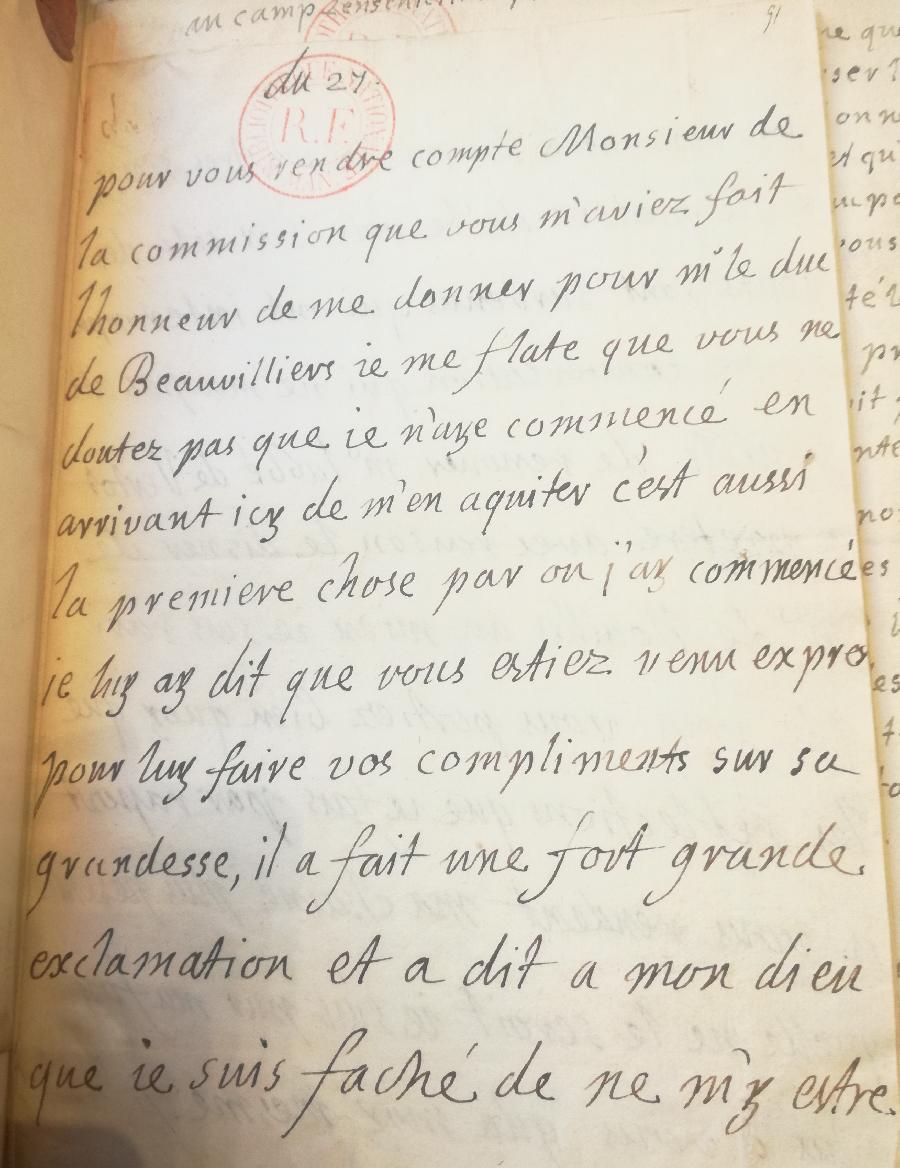 au camp
91
du 27.
R.F.
pour vous rendre compte Monsieur de
la commission que vous m'aviez fait
lhonneur de me donner pour mr le duc
de Beauvilliers ie me flate que vous ne
doutez pas que ie n'aye commencé en
arrivant icy de m'en aquiter c'est aussi
la premiere chose par ou j'ay commencée
ie luy ay dit que vous estiez venu expres
pour luy faire vos compliments sur sa
grandesse, il a fait une fort grande
exclamation et a dit a mon dieu
que ie suis faché de ne m'y estre